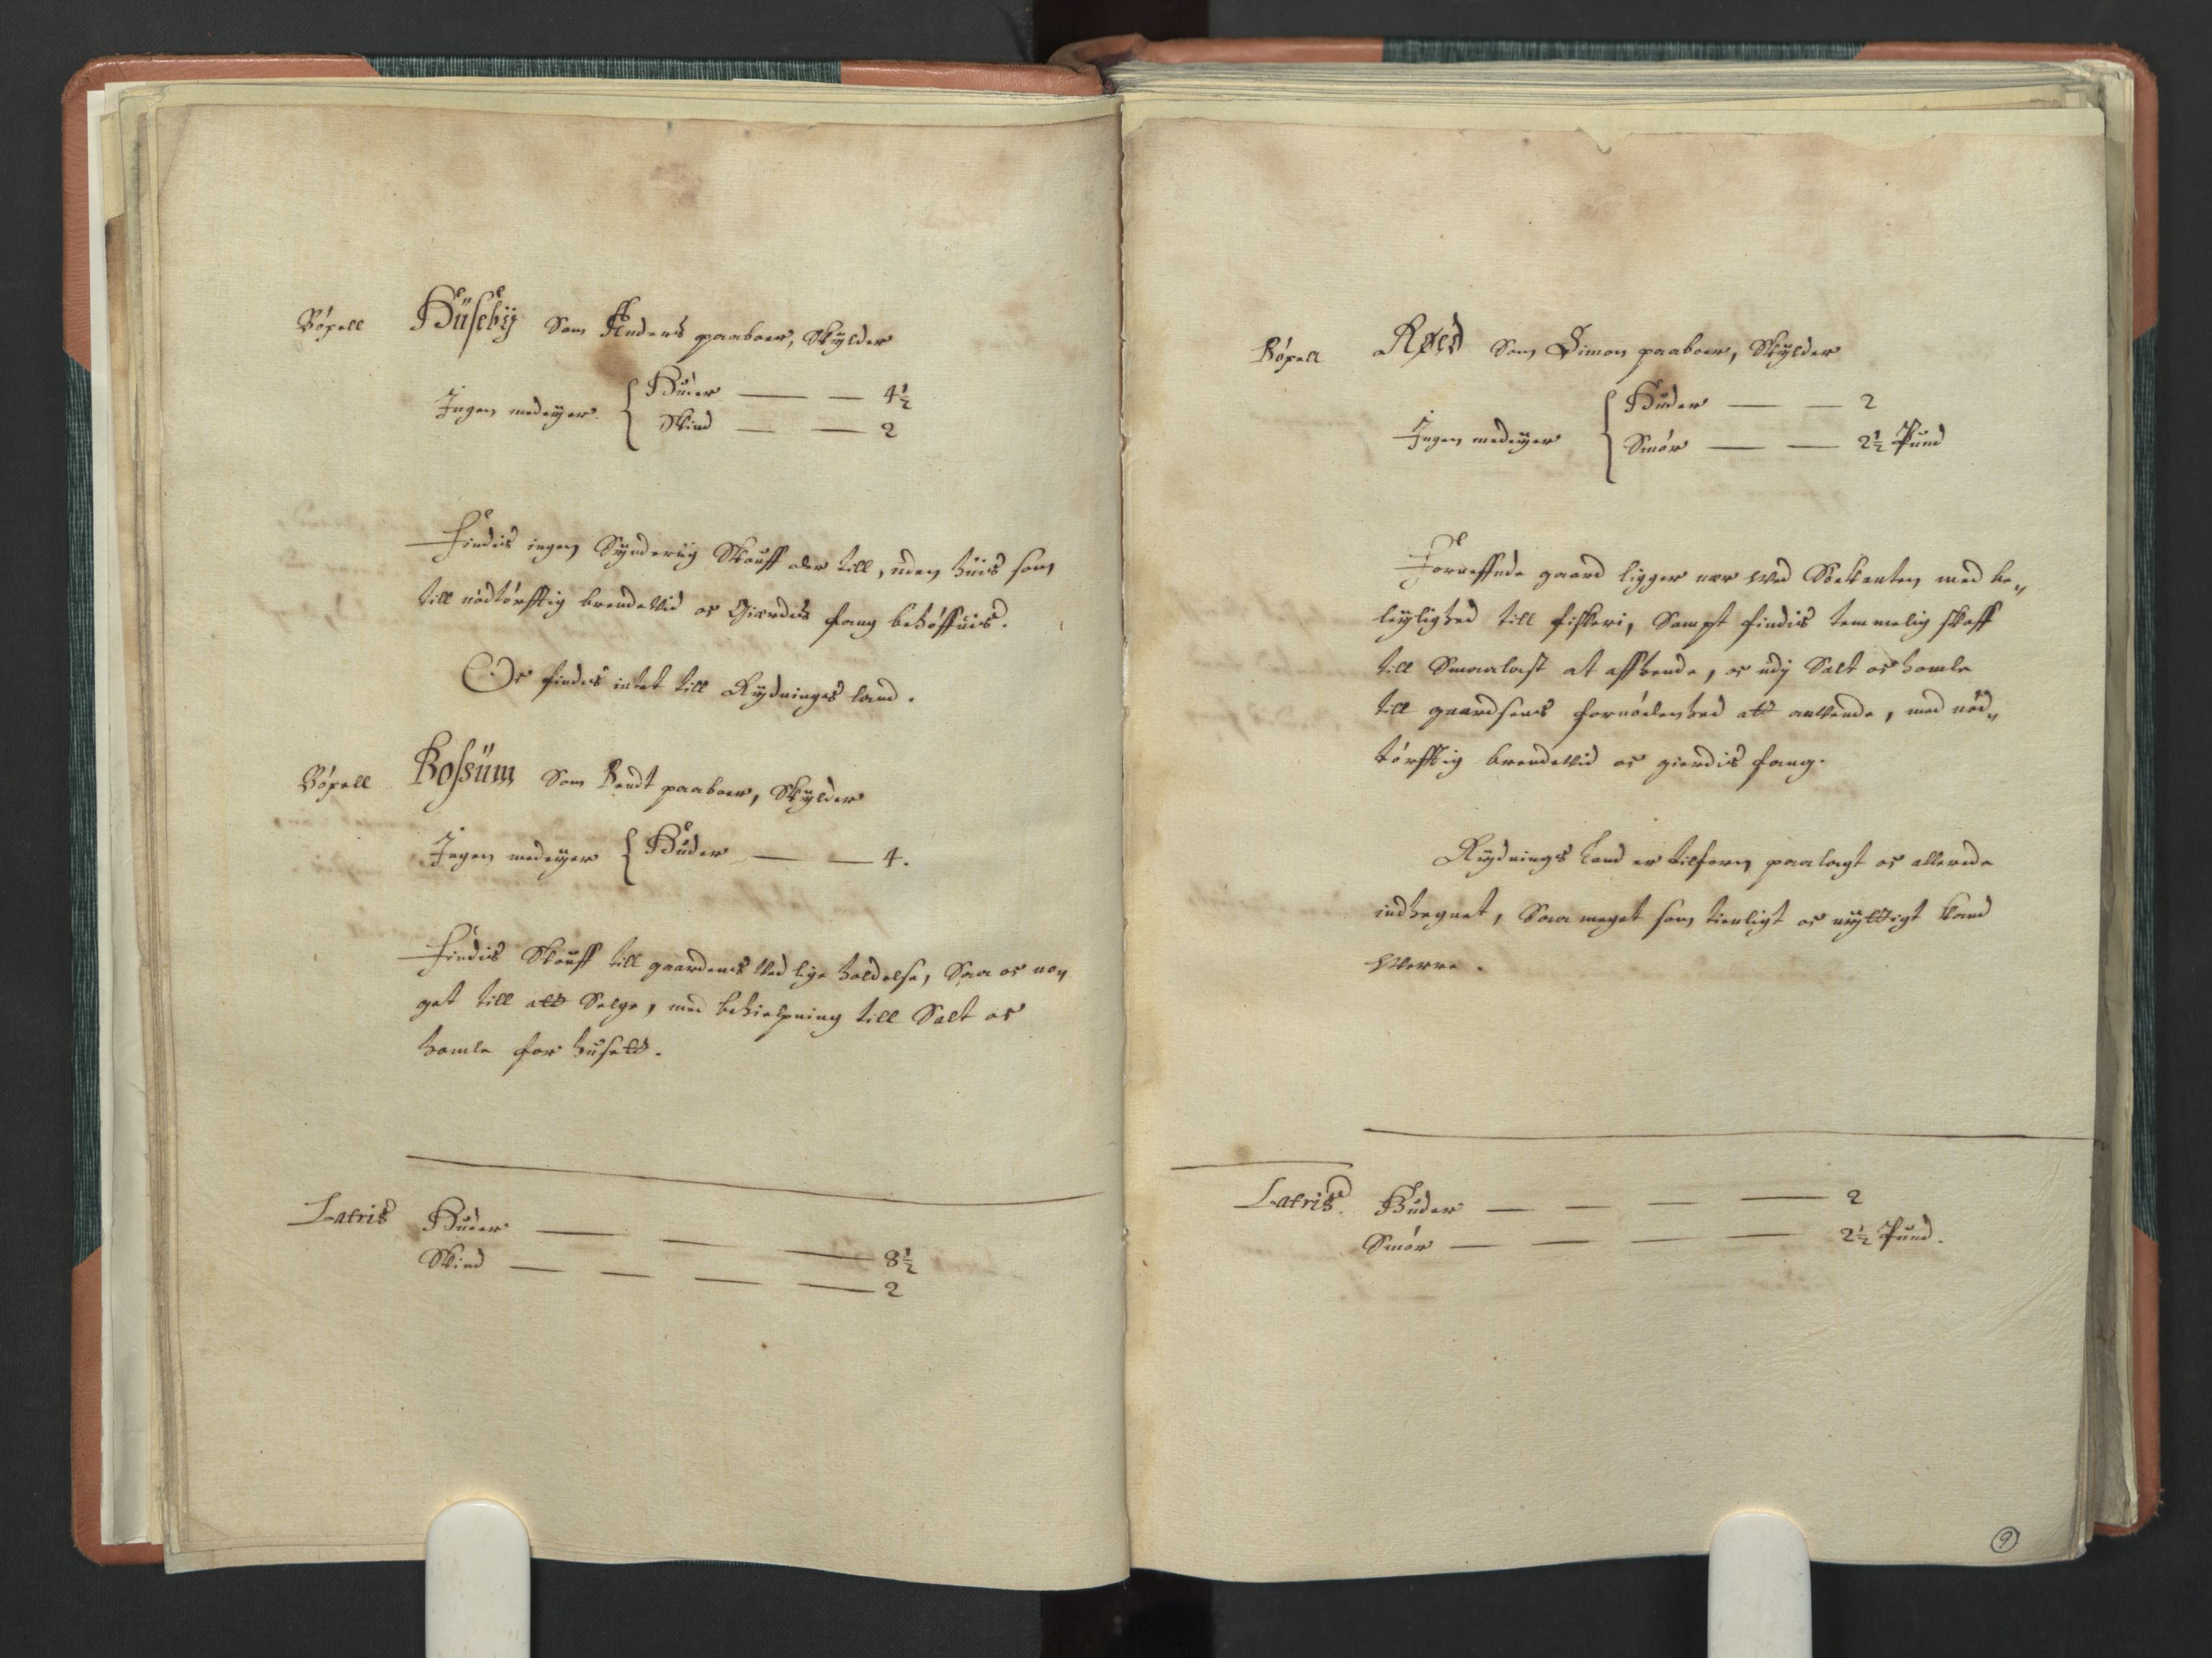 Böxell Huseby Som Anders paaboer, Skylder
Ingen medeyer { Huder — — 4½
Skind — — 2
Findis ingen Synderlig Skouff der till, uden huis som
till nødtørfftig brendeved oc Gierdis fang behøffuis.
Oc findis intet till Rydnings land.
Böxell Bossum Som Bendt paaboer, Skylder
Ingen medeyer { Huder — — 4.
Findis Skouff till gaardens ved lige holdelse, Saa oc no,,
get till att Selge, med behielpning till Salt oc
homle for huset.
Latris Huder — — — 8½
Skind — — — — 2
Böxell Røed Som Simon paaboer, Skylder
Ingen medeyer { Huder — — 2
Smør — — 2½ Pund
Forneffnde gaard ligger nær wed Søekanten med be,,
leylighed till fiskeri, Sampt findis temmelig skoff
till Smaalast at affhende, oc udj Salt oc homle
till gaardsens fornødenhed att anvende, med nød,,
tørfftig brendeved oc gierdis fang.
Rydnings land er tilforn paalagt oc allerede
indhegnet, Saa meget som tienligt oc nyttigt kand
Werre.
Latris. Huder — — — — 2
Smør — — — — 2½ Pund.
9